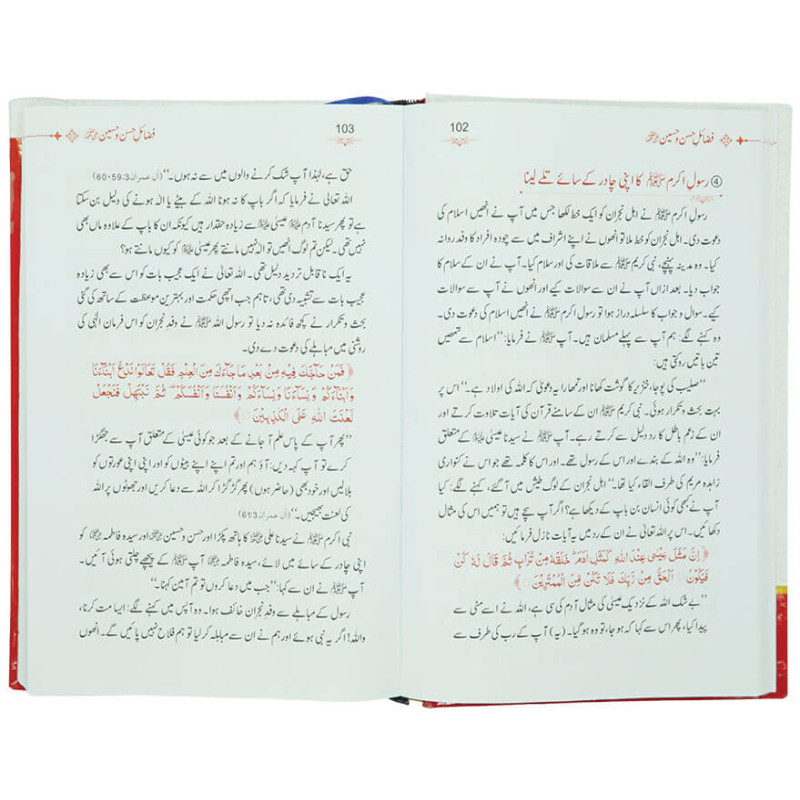 102
فضائلِ حسن و حسین رضی اللہ عنہما
④ رسولِ اکرم ﷺ کا اپنی چادر کے سائے تلے لینا
رسولِ اکرم ﷺ نے اہلِ نجران کو ایک خط لکھا جس میں آپ نے انھیں اسلام کی
دعوت دی۔ اہلِ نجران کو خط ملا تو انھوں نے اپنے اشراف میں سے چودہ افراد کا وفد روانہ
کیا۔ وہ مدینہ پہنچے، نبی کریم ﷺ سے ملاقات کی اور سلام کیا۔ آپ نے ان کے سلام کا
جواب دیا۔ بعد ازاں آپ نے ان سے سوالات کیے اور انھوں نے آپ سے سوالات
کیے۔ سوال و جواب کا سلسلہ دراز ہوا تو رسول اکرم ﷺ نے انھیں اسلام کی دعوت دی۔
وہ کہنے لگے: ہم آپ سے پہلے مسلمان ہیں۔ آپ ﷺ نے فرمایا: ”اسلام سے تمھیں
تین باتیں روکتی ہیں:
”صلیب کی پوجا، خنزیر کا گوشت کھانا اور تمھارا یہ دعویٰ کہ اللہ کی اولاد ہے۔“ اس پر
بہت بحث و تکرار ہوئی۔ نبی کریم ﷺ ان کے سامنے قرآن کی آیات تلاوت کرتے اور
ان کے زعمِ باطل کا رد دلیل سے کرتے رہے۔ آپ ﷺ نے سیدنا عیسیٰ علیہ السلام کے متعلق
فرمایا: ”وہ اللہ کے بندے اور اس کے رسول تھے۔ اور اس کا کلمہ تھے جو اس نے کنواری
زاہدہ مریم کی طرف القاء کیا تھا۔“ اہل نجران کے لوگ طیش میں آ گئے، کہنے لگے: کیا
آپ نے کبھی کوئی انسان بن باپ کے دیکھا ہے؟ اگر آپ سچے ہیں تو ہمیں اس کی مثال
دکھائیں۔ اس پر اللہ تعالیٰ نے ان کے رد میں یہ آیات نازل فرمائیں:
﴿ اِنَّ مَثَلَ عِيْسٰى عِنْدَ اللّٰهِ كَمَثَلِ اٰدَمَ ؕ خَلَقَهٗ مِنْ تُرَابٍ ثُمَّ قَالَ لَهٗ كُنْ
فَيَكُوْنُ ۝ اَلْحَقُّ مِنْ رَّبِّكَ فَلَا تَكُنْ مِّنَ الْمُمْتَرِيْنَ ۝ ﴾
”بے شک اللہ کے نزدیک عیسیٰ کی مثال آدم کی سی ہے، اللہ نے اسے مٹی سے
پیدا کیا، پھر اس سے کہا کہ ہو جا، تو وہ ہو گیا۔ (یہ) آپ کے رب کی طرف سے
103
فضائلِ حسن و حسین رضی اللہ عنہما
حق ہے، لہٰذا آپ شک کرنے والوں میں سے نہ ہوں۔“ (آل عمران 3:59-60)
اللہ تعالیٰ نے فرمایا کہ اگر باپ کا نہ ہونا اللہ کے بیٹے یا الٰہ ہونے کی دلیل بن سکتا
ہے تو پھر سیدنا آدم علیہ السلام عیسیٰ علیہ السلام سے زیادہ حقدار ہیں کیونکہ ان کا باپ کے علاوہ ماں بھی
نہیں تھی۔ لیکن تم لوگ انھیں تو الٰہ نہیں مانتے پھر عیسیٰ علیہ السلام کو کیوں مانتے ہو؟
یہ ایک ناقابل تردید دلیل تھی۔ اللہ تعالیٰ نے ایک عجیب بات کو اس سے بھی زیادہ
عجیب بات سے تشبیہ دی تھی، تاہم جب اچھی حکمت اور بہترین موعظت کے ساتھ کی گئی
بحث و تکرار نے کچھ فائدہ نہ دیا تو رسول اللہ ﷺ نے وفدِ نجران کو اس فرمانِ الٰہی کی
روشنی میں مباہلے کی دعوت دے دی۔
﴿ فَمَنْ حَآجَّكَ فِيْهِ مِنْ بَعْدِ مَا جَآءَكَ مِنَ الْعِلْمِ فَقُلْ تَعَالَوْا نَدْعُ اَبْنَآءَنَا
وَ اَبْنَآءَكُمْ وَ نِسَآءَنَا وَ نِسَآءَكُمْ وَ اَنْفُسَنَا وَ اَنْفُسَكُمْ ۫ ثُمَّ نَبْتَهِلْ فَنَجْعَلْ
لَّعْنَتَ اللّٰهِ عَلَى الْكٰذِبِيْنَ ۝ ﴾
”پھر آپ کے پاس علم آ جانے کے بعد جو کوئی عیسیٰ کے متعلق آپ سے جھگڑا
کرے تو آپ کہہ دیں: آؤ ہم اور تم اپنے اپنے بیٹوں کو اور اپنی اپنی عورتوں کو
بلا لیں اور خود بھی (حاضر ہوں) پھر گڑگڑا کر اللہ سے دعا کریں اور جھوٹوں پر اللہ
کی لعنت بھیجیں۔“ (آل عمران 3:61)
نبی اکرم ﷺ نے سیدنا علی رضی اللہ عنہ کا ہاتھ پکڑا اور حسن و حسین رضی اللہ عنہما اور سیدہ فاطمہ رضی اللہ عنہا کو
اپنی چادر کے سائے میں لا لائے، سیدہ فاطمہ رضی اللہ عنہا آپ ﷺ کے پیچھے چلتی ہوئی آئیں۔
آپ ﷺ نے ان سے کہا: ”جب میں دعا کروں تو تم آمین کہنا۔“
رسول کے مباہلے سے وفدِ نجران خائف ہوا۔ وہ آپس میں کہنے لگے: ایسا مت کرنا،
واللہ! اگر یہ نبی ہوئے اور ہم نے ان سے مباہلہ کر لیا تو ہم فلاح نہیں پائیں گے۔ انھوں